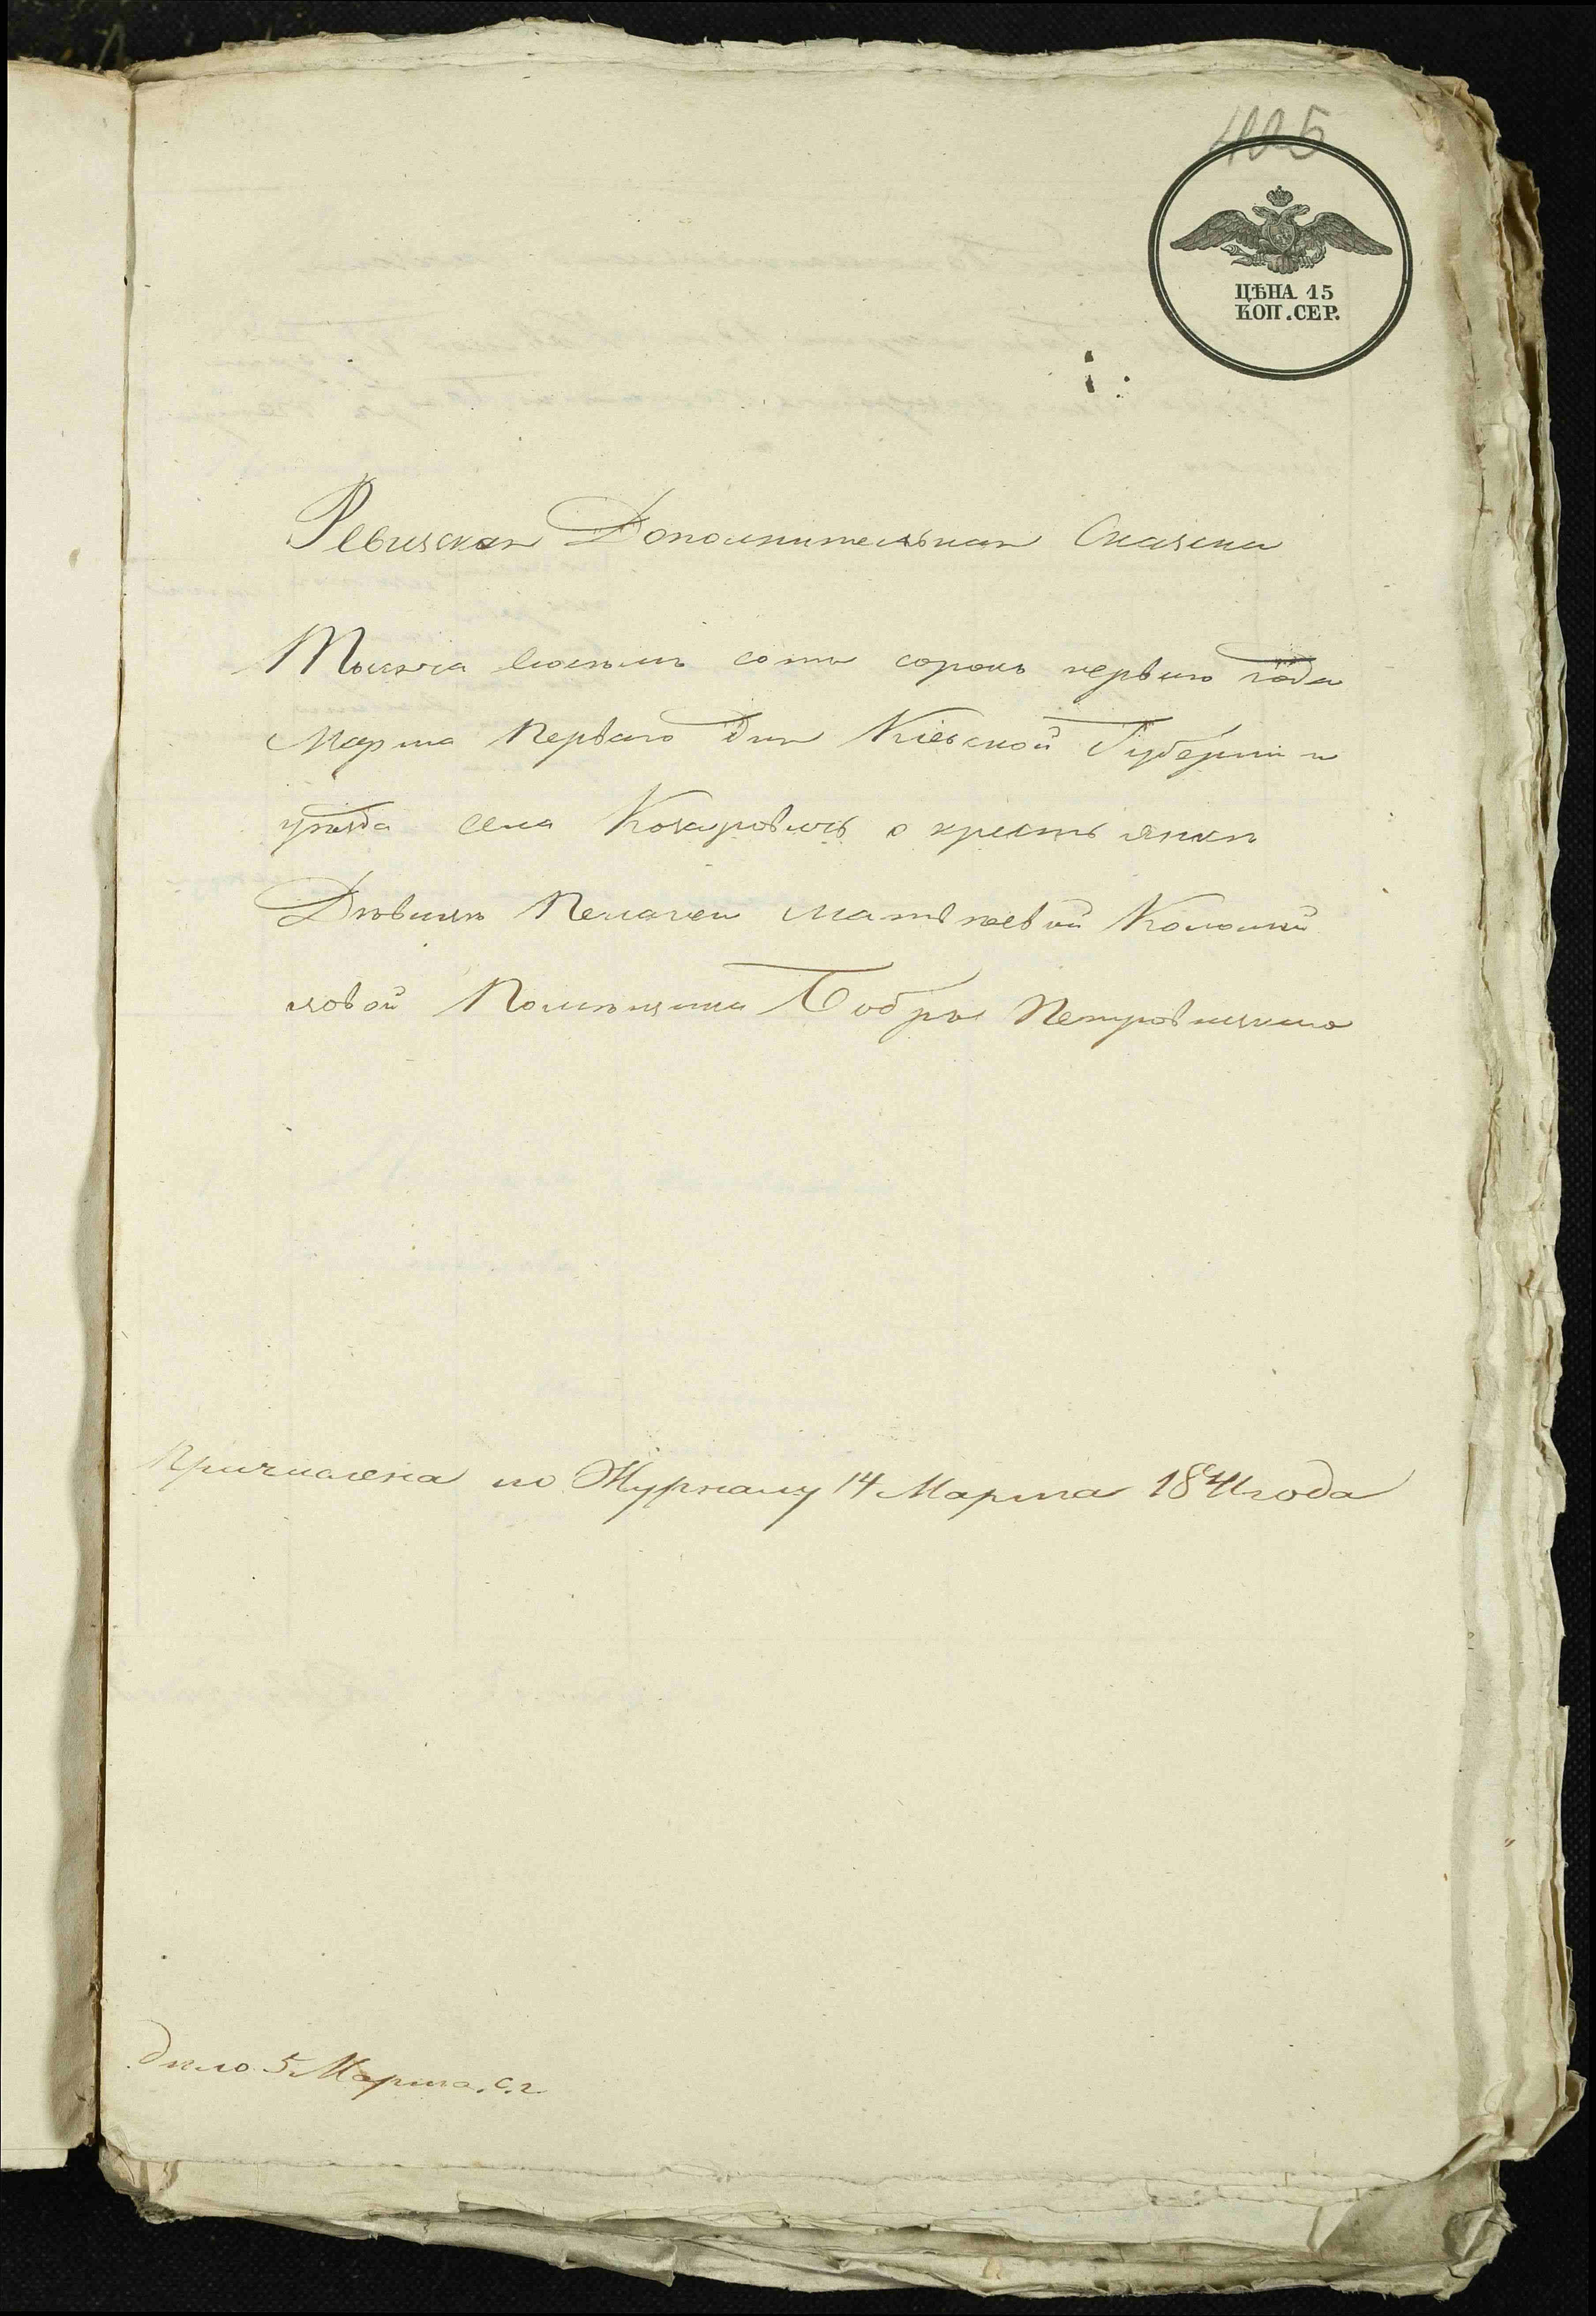 405
ЦѢНА 15
КОП. СЕР.
Ревизская Дополнительная Сказка
Тысяча восемь сотъ сорокъ первого года
Марта Перваго дня Кіевской Губерніи и
уѣзда села Козаровичь о крестьянкѣ
Дѣвицѣ Пелагеи Матвѣевой Коломій
цовой Помѣщика Бобръ Петровицкаго
Причислена по Журналу 14 Марта 1841 года
дѣло 5 Марта. с. г.